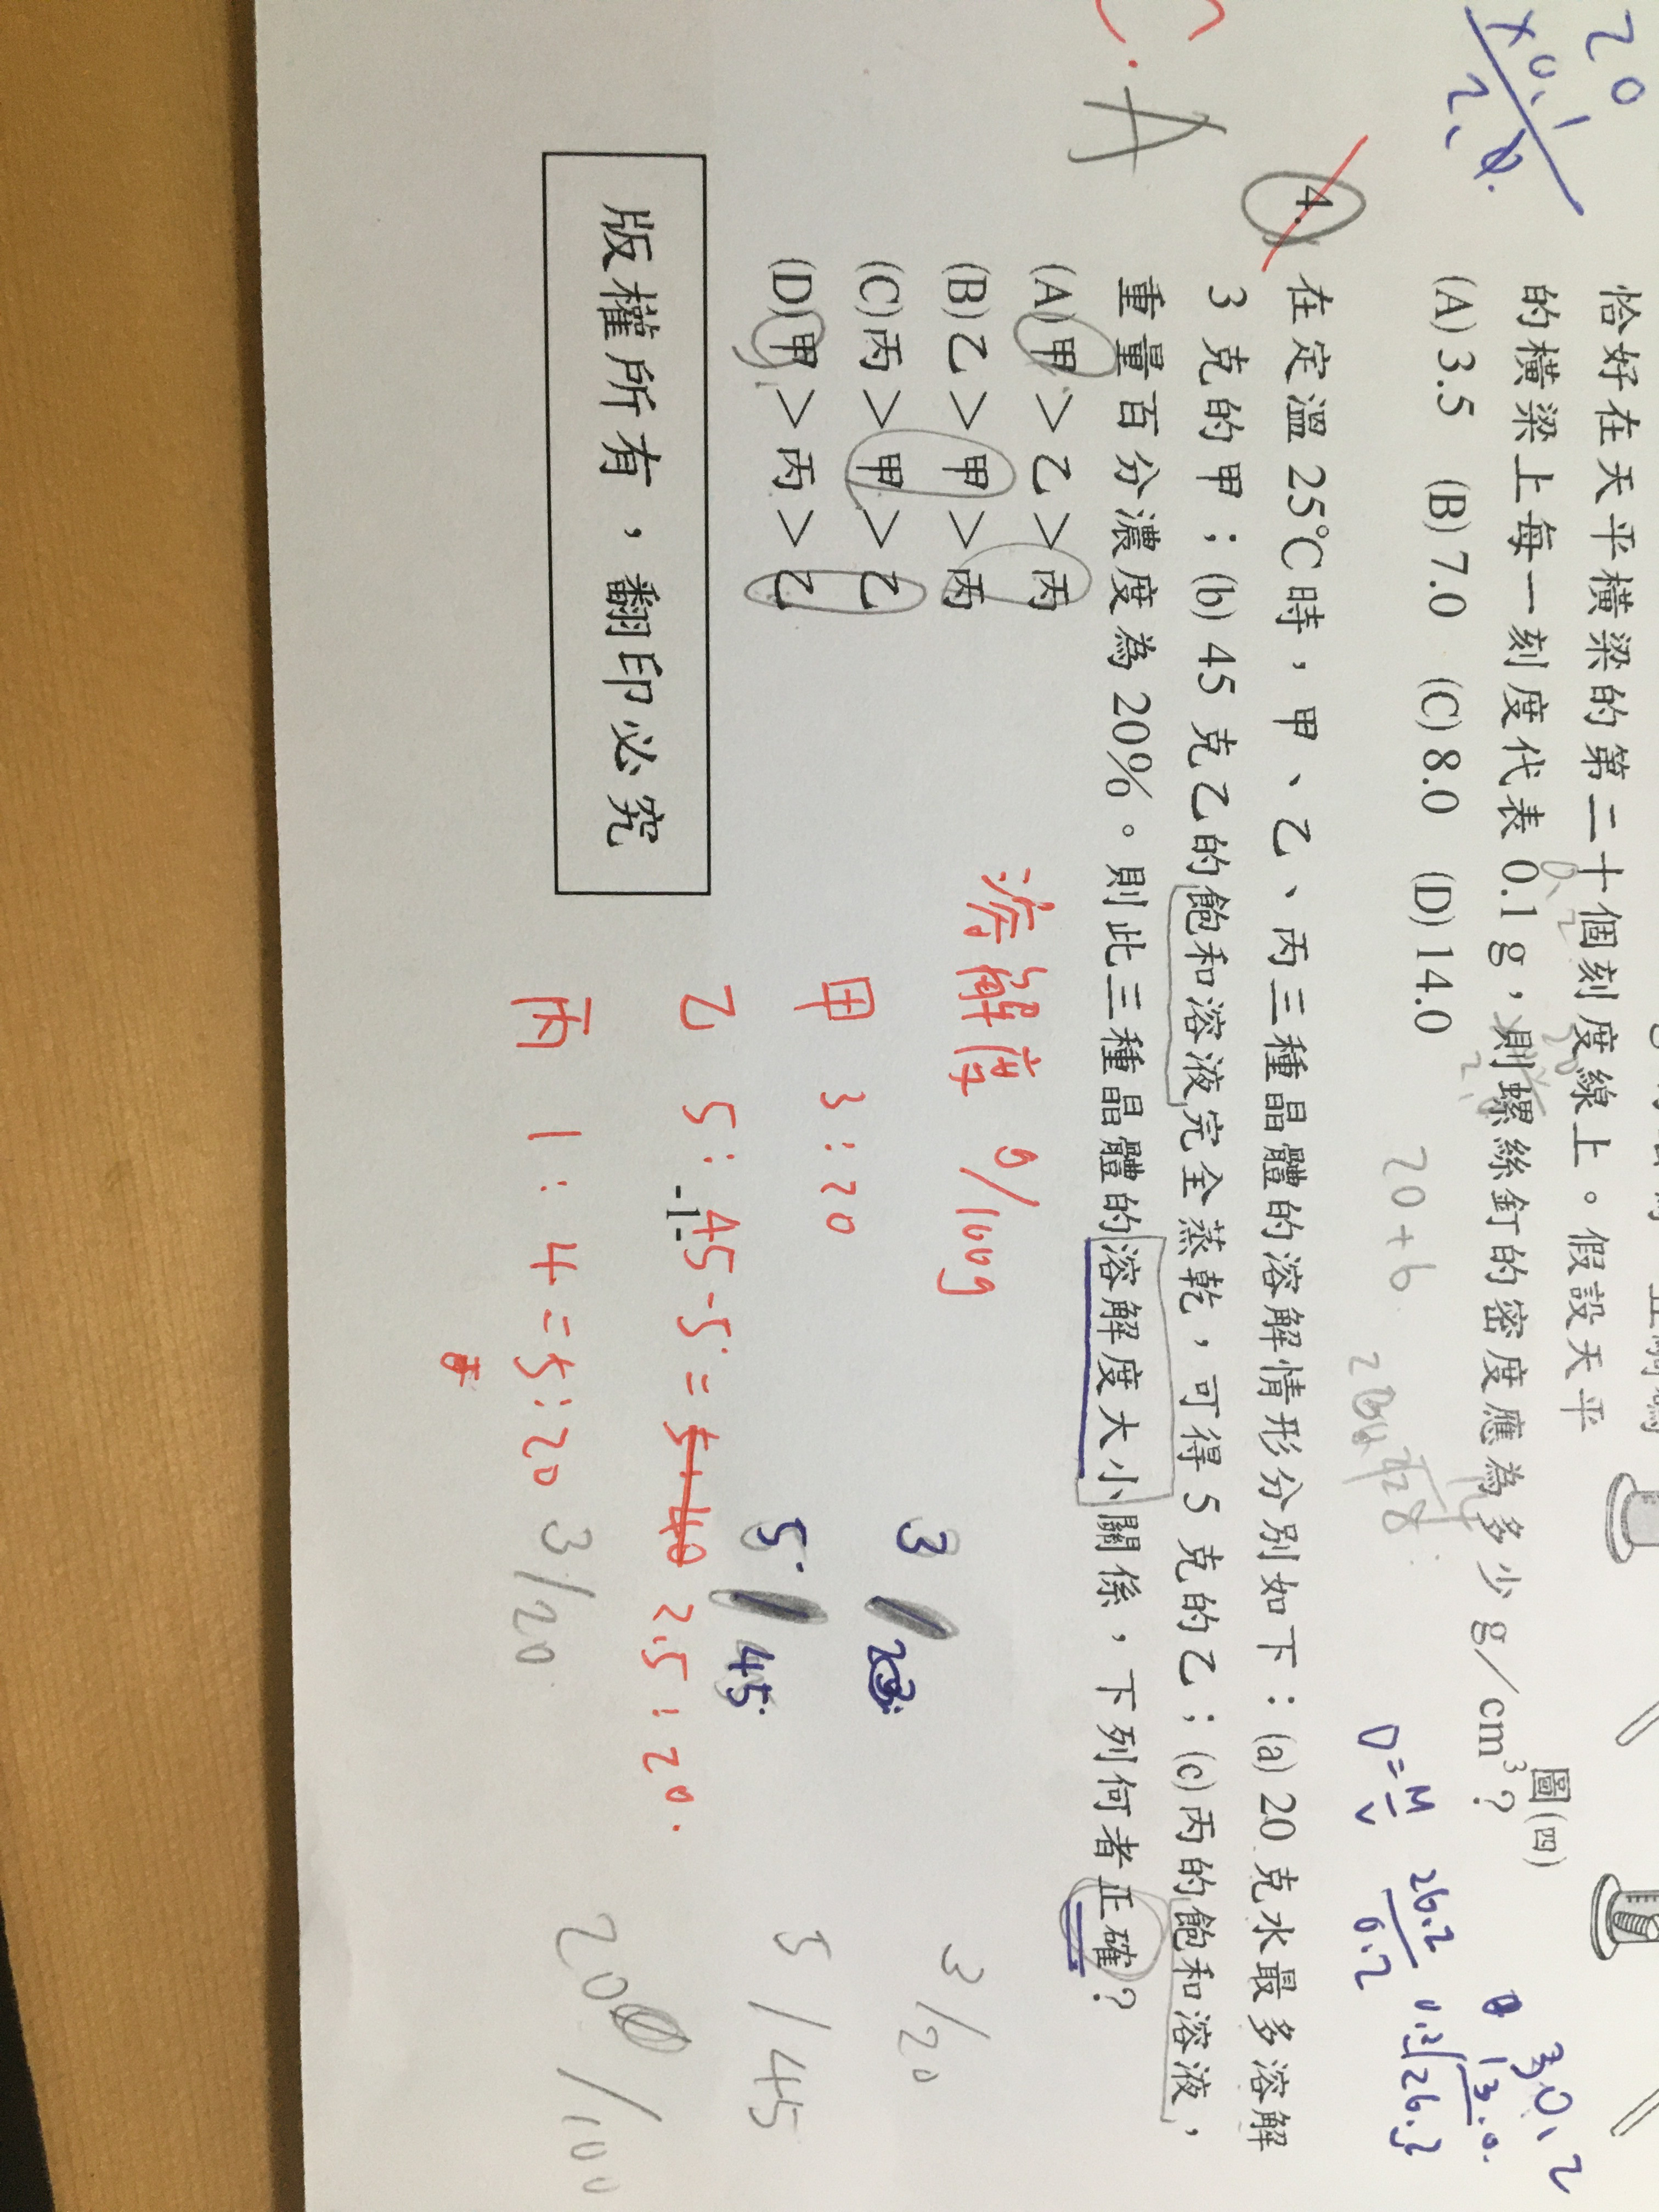 恰好在天平橫梁的第二十個刻度線上。假設天平
的橫梁上每一刻度代表 0.1 g,則螺絲釘的密度應為多少 g/cm³?
(A) 3.5 (B) 7.0 (C) 8.0 (D) 14.0
圖(四)
20
×0.1
2.0.
20+6
D=M/V
26.2
0.2
30.2
13.0.
4. 在定溫 25℃時,甲、乙、丙三種晶體的溶解情形分別如下:(a) 20 克水最多溶解
3 克的甲;(b) 45 克乙的飽和溶液完全蒸乾,可得 5 克的乙;(c)丙的飽和溶液,
重量百分濃度為 20%。則此三種晶體的溶解度大小關係,下列何者正確?
(A)甲>乙>丙
(B)乙>甲>丙
(C)丙>甲>乙
(D)甲>丙>乙
C.
A
溶解度 g/100g
甲 3:20
乙 5:45-5=5:40 2.5:20.
丙 1:4=5:20
3/20
5/45
3/20
3/20
5/45
200/100
版權所有,翻印必究
-1-